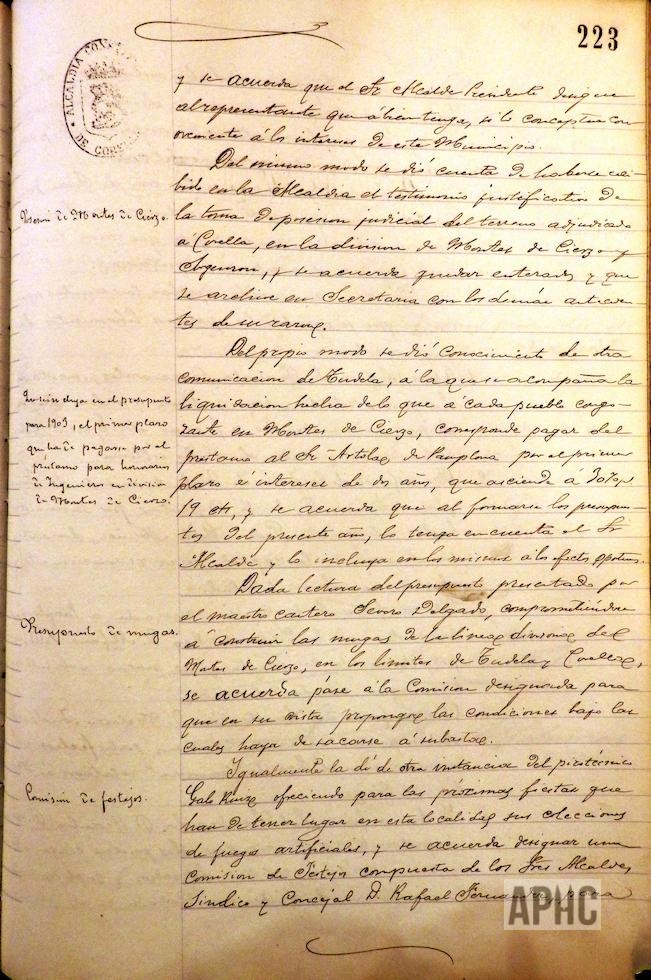 223
ALCALDIA CON
DE CORE
y se acuerda que el Sr Alcalde Presidente designe
al representante que á bien tenga, si lo conceptua con
veniente á los intereses de este Municipio.
Del mismo modo se dió cuenta de haberse reci
bido en la Alcaldia el testimonio justificativo de
Posesión de Montes de Cierzo.
la toma de posesion judicial del terreno adjudicado
á Corella, en la division de Montes de Cierzo y
Argenzon, y se acuerda quedar enterados y que
se archive en Secretaria con los demás antecen
tes de su razon.
Del propio modo se dió conocimiento de otra
comunicacion de Tudela, á la que se acompaña la
Inclúyase en el presupuesto
para 1903, el primer plazo
que ha de pagarse por el
préstamo para honorarios
de Ingenieros en division
de Montes de Cierzo.
liquidacion hecha de lo que á cada pueblo congo-
zante en Montes de Cierzo, corresponde pagar del
prestamo al Sr Artola de Pamplona por el primer
plazo é intereses de dos años, que asciende á
19 cts, y se acuerda que al formarse los presupues-
tos del presente año, lo tenga en cuenta el Sr
Alcalde y lo incluya en los mismos á los efectos oportunos.
Dada lectura del presupuesto presentado por
el maestro cantero Severo Delgado, comprometiéndose
Presupuesto de mugas.
á construir las mugas de la linea divisoria del
Montes de Cierzo, en los limites de Tudela y Corella,
se acuerda pase á la Comision designada para
que en su vista proponga las condiciones bajo las
cuales haya de sacarse á subasta.
Igualmente la dí de otra instancia del pirotécnico
Comisión de festejos.
Galo Ruiz ofreciendo para las próximas fiestas que
han de tener lugar en esta localidad sus colecciones
de fuegos artificiales, y se acuerda designar una
Comision de Festejos compuesta de los Sres Alcalde,
Sindico y Concejal D. Rafael Fernandez, para
APHC